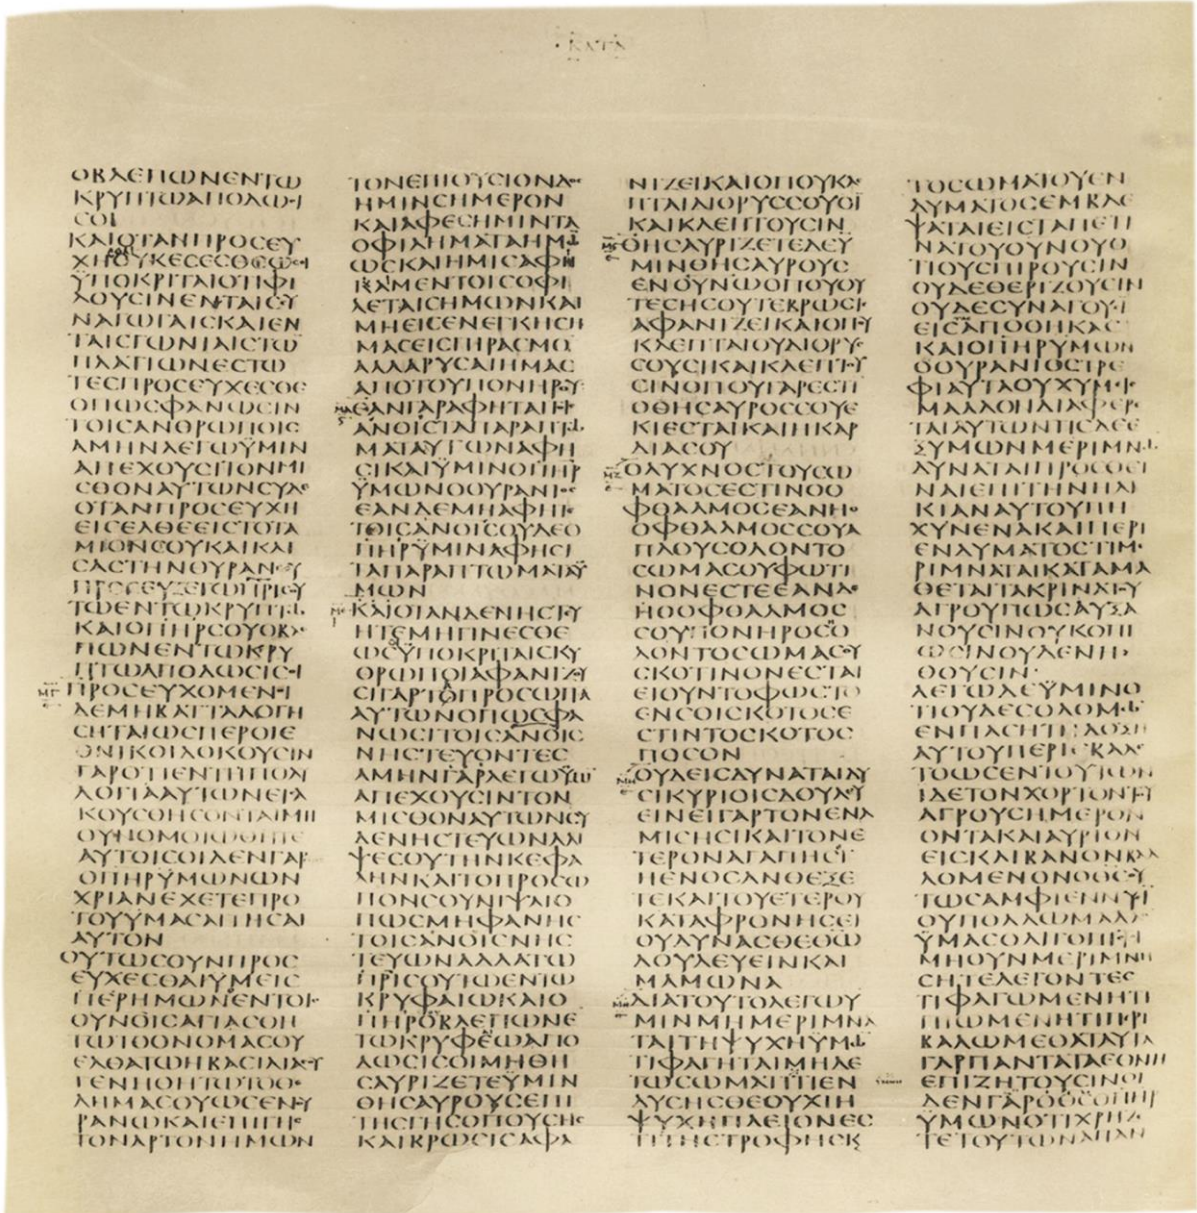 ΚΑΤΑ
ΟΒΛΕΠΩΝΕΝΤΩ
ΚΡΥΠΤΩΑΠΟΔΩϹΙ
ϹΟΙ
ΚΑΙΟΤΑΝΠΡΟϹΕΥ
ΧΗΟΥΚΕϹΕϹΘΕΩϹΟΙ
ΫΠΟΚΡΙΤΑΙΟΤΙΦΙ
ΛΟΥϹΙΝΕΝΤΑΙϹΥ
ΝΑΓΩΓΑΙϹΚΑΙΕΝ
ΤΑΙϹΓΩΝΙΑΙϹΤΩ
ΠΛΑΤΙΩΝΕϹΤΩ
ΤΕϹΠΡΟϹΕΥΧΕϹΘΕ
ΟΠΩϹΦΑΝΩϹΙΝ
ΤΟΙϹΑΝΘΡΩΠΟΙϹ
ΑΜΗΝΛΕΓΩΫΜΙΝ
ΑΠΕΧΟΥϹΙΤΟΝΜΙ
ϹΘΟΝΑΥΤΩΝϹΥΔΕ
ΟΤΑΝΠΡΟϹΕΥΧΗ
ΕΙϹΕΛΘΕΕΙϹΤΟΤΑ
ΜΙΟΝϹΟΥΚΑΙΚΛΙ
ϹΑϹΤΗΝΘΥΡΑΝϹΟΥ
ΠΡΟϹΕΥΞΕΤΩΠΡΙϹΟΥ
ΤΩΕΝΤΩΚΡΥΠΤΩ
ΚΑΙΟΠΗΡϹΟΥΟΒΛΕ
ΠΩΝΕΝΤΩΚΡΥ
ΠΤΩΑΠΟΔΩϹΙϹΟΙ
ΠΡΟϹΕΥΧΟΜΕΝΟΙ
ΔΕΜΗΒΑΤΤΑΛΟΓΗ
ϹΗΤΑΙΩϹΠΕΡΟΙΕ
ΘΝΙΚΟΙΔΟΚΟΥϹΙΝ
ΓΑΡΟΤΙΕΝΤΗΠΟΛΥ
ΛΟΓΙΑΑΥΤΩΝΕΙϹΑ
ΚΟΥϹΘΗϹΟΝΤΑΙΜΗ
ΟΥΝΟΜΟΙΩΘΗΤΕ
ΑΥΤΟΙϹΟΙΔΕΝΓΑΡ
ΟΠΗΡΫΜΩΝΩΝ
ΧΡΙΑΝΕΧΕΤΕΠΡΟ
ΤΟΥΥΜΑϹΑΙΤΗϹΑΙ
ΑΥΤΟΝ
ΟΥΤΩϹΟΥΝΠΡΟϹ
ΕΥΧΕϹΘΑΙΫΜΕΙϹ
ΠΕΡΗΜΩΝΕΝΤΟΙϹ
ΟΥΝΟΙϹΑΓΙΑϹΘΗ
ΤΩΤΟΟΝΟΜΑϹΟΥ
ΕΛΘΑΤΩΗΒΑϹΙΛΙΑϹΟΥ
ΓΕΝΗΘΗΤΩΤΟΘΕ
ΛΗΜΑϹΟΥΩϹΕΝΟΥ
ΡΑΝΩΚΑΙΕΠΙΓΗϹ
ΤΟΝΑΡΤΟΝΗΜΩΝ
ΤΟΝΕΠΙΟΥϹΙΟΝΔΟϹ
ΗΜΙΝϹΗΜΕΡΟΝ
ΚΑΙΑΦΕϹΗΜΙΝΤΑ
ΟΦΙΛΗΜΑΤΑΗΜΩ
ΩϹΚΑΙΗΜΙϹΑΦΗ
ΚΑΜΕΝΤΟΙϹΟΦΙ
ΛΕΤΑΙϹΗΜΩΝΚΑΙ
ΜΗΕΙϹΕΝΕΓΚΗϹΗ
ΜΑϹΕΙϹΠΙΡΑϹΜΟ
ΑΛΛΑΡΥϹΑΙΗΜΑϹ
ΑΠΟΤΟΥΠΟΝΗΡΟΥ
ΕΑΝΓΑΡΑΦΗΤΑΙΤΟΙϹ
ΑΝΟΙϹΤΑΠΑΡΑΠΤΩ
ΜΑΤΑΑΥΤΩΝΑΦΗ
ϹΙΚΑΙΫΜΙΝΟΠΗΡ
ΫΜΩΝΟΟΥΡΑΝΙΟϹ
ΕΑΝΔΕΜΗΑΦΗΤΕ
ΤΟΙϹΑΝΟΙϹΟΥΔΕΟ
ΠΗΡΫΜΙΝΑΦΗϹΙ
ΤΑΠΑΡΑΠΤΩΜΑΤΑΫ
ΜΩΝ
ΚΑΙΟΤΑΝΔΕΝΗϹΤΕΥ
ΗΤΕΜΗΓΙΝΕϹΘΕ
ΩϹΫΠΟΚΡΙΤΑΙϹΚΥ
ΘΡΩΠΟΙΑΦΑΝΙΖΟΥ
ϹΙΓΑΡΤΟΠΡΟϹΩΠΑ
ΑΥΤΩΝΟΠΩϹΦΑ
ΝΩϹΙΤΟΙϹΑΝΟΙϹ
ΝΗϹΤΕΥΟΝΤΕϹ
ΑΜΗΝΓΑΡΛΕΓΩΫΜΙ
ΑΠΕΧΟΥϹΙΝΤΟΝ
ΜΙϹΘΟΝΑΥΤΩΝϹΥ
ΔΕΝΗϹΤΕΥΩΝΑΛΙ
ΨΕϹΟΥΤΗΝΚΕΦΑ
ΛΗΝΚΑΙΤΟΠΡΟϹΩ
ΠΟΝϹΟΥΝΙΨΑΙΟ
ΠΩϹΜΗΦΑΝΗϹ
ΤΟΙϹΑΝΟΙϹΝΗϹ
ΤΕΥΩΝΑΛΛΑΤΩ
ΠΡΙϹΟΥΤΩΕΝΤΩ
ΚΡΥΦΑΙΩΚΑΙΟ
ΠΗΡΟΒΛΕΠΩΝΕ
ΤΩΚΡΥΦΕΩΑΠΟ
ΔΩϹΙϹΟΙΜΗΘΗ
ϹΑΥΡΙΖΕΤΕΫΜΙΝ
ΘΗϹΑΥΡΟΥϹΕΠΙ
ΤΗϹΓΗϹΟΠΟΥϹΗϹ
ΚΑΙΒΡΩϹΙϹΑΦΑ
ΝΙΖΕΙΚΑΙΟΠΟΥΚΛΕ
ΠΤΑΙΔΙΟΡΥϹϹΟΥϹΙ
ΚΑΙΚΛΕΠΤΟΥϹΙΝ
ΘΗϹΑΥΡΙΖΕΤΕΔΕΫ
ΜΙΝΘΗϹΑΥΡΟΥϹ
ΕΝΟΥΝΩΟΠΟΥΟΥ
ΤΕϹΗϹΟΥΤΕΒΡΩϹΙϹ
ΑΦΑΝΙΖΕΙΚΑΙΟΠΟΥ
ΚΛΕΠΤΑΙΟΥΔΙΟΡΥϹ
ϹΟΥϹΙΚΑΙΚΛΕΠΤΟΥ
ϹΙΝΟΠΟΥΓΑΡΕϹΤΙ
ΟΘΗϹΑΥΡΟϹϹΟΥΕ
ΚΙΕϹΤΑΙΚΑΙΗΚΑΡ
ΔΙΑϹΟΥ
ΟΛΥΧΝΟϹΤΟΥϹΩ
ΜΑΤΟϹΕϹΤΙΝΟΟ
ΦΘΑΛΜΟϹΕΑΝΗΟ
ΟΦΘΑΛΜΟϹϹΟΥΑ
ΠΛΟΥϹΟΛΟΝΤΟ
ϹΩΜΑϹΟΥΦΩΤΙ
ΝΟΝΕϹΤΕΕΑΝΔΕ
ΗΟΟΦΘΑΛΜΟϹ
ϹΟΥΠΟΝΗΡΟϹΟ
ΛΟΝΤΟϹΩΜΑϹΟΥ
ϹΚΟΤΙΝΟΝΕϹΤΑΙ
ΕΙΟΥΝΤΟΦΩϹΤΟ
ΕΝϹΟΙϹΚΟΤΟϹΕ
ϹΤΙΝΤΟϹΚΟΤΟϹ
ΠΟϹΟΝ
ΟΥΔΕΙϹΔΥΝΑΤΑΙΔΥ
ϹΙΚΥΡΙΟΙϹΔΟΥΛΕΥ
ΕΙΝΕΙΓΑΡΤΟΝΕΝΑ
ΜΙϹΗϹΙΚΑΙΤΟΝΕ
ΤΕΡΟΝΑΓΑΠΗϹΙ
ΗΕΝΟϹΑΝΘΕΞΕ
ΤΕΚΑΙΤΟΥΕΤΕΡΟΥ
ΚΑΤΑΦΡΟΝΗϹΕΙ
ΟΥΔΥΝΑϹΘΕΘΩ
ΔΟΥΛΕΥΕΙΝΚΑΙ
ΜΑΜΩΝΑ
ΔΙΑΤΟΥΤΟΛΕΓΩΥ
ΜΙΝΜΗΜΕΡΙΜΝΑ
ΤΑΙΤΗΨΥΧΗΥΜΩ
ΤΙΦΑΓΗΤΑΙΜΗΔΕ
ΤΩϹΩΜΑΤΙΤΙΕΝ
ΔΥϹΗϹΘΕΟΥΧΙΗ
ΨΥΧΗΠΛΕΙΟΝΕϹ
ΤΙΤΗϹΤΡΟΦΗϹΚ
ΤΟϹΩΜΑΤΟΥΕΝ
ΔΥΜΑΤΟϹΕΜΒΛΕ
ΨΑΤΑΙΕΙϹΤΑΠΕΤΙ
ΝΑΤΟΥΟΥΝΟΥΟ
ΤΙΟΥϹΠΙΡΟΥϹΙΝ
ΟΥΔΕΘΕΡΙΖΟΥϹΙΝ
ΟΥΔΕϹΥΝΑΓΟΥϹΙ
ΕΙϹΑΠΟΘΗΚΑϹ
ΚΑΙΟΠΗΡΥΜΩΝ
ΟΟΥΡΑΝΙΟϹΤΡΕ
ΦΙΑΥΤΑΟΥΧΥΜΕΙϹ
ΜΑΛΛΟΝΔΙΑΦΕΡΕ
ΤΑΙΑΥΤΩΝΤΙϹΔΕΕ
ΞΥΜΩΝΜΕΡΙΜΝΩ
ΔΥΝΑΤΑΙΠΡΟϹΘΕΙ
ΝΑΙΕΠΙΤΗΝΗΛΙ
ΚΙΑΝΑΥΤΟΥΠΗ
ΧΥΝΕΝΑΚΑΙΠΕΡΙ
ΕΝΔΥΜΑΤΟϹΤΙΜΕ
ΡΙΜΝΑΤΑΙΚΑΤΑΜΑ
ΘΕΤΑΙΤΑΚΡΙΝΑΤΟΥ
ΑΓΡΟΥΠΩϹΑΥΞΑ
ΝΟΥϹΙΝΟΥΚΟΠΙ
ΩϹΙΝΟΥΔΕΝΗ
ΘΟΥϹΙΝ
ΛΕΓΩΔΕΫΜΙΝΟ
ΤΙΟΥΔΕϹΟΛΟΜΩ
ΕΝΠΑϹΗΤΗΔΟΞΗ
ΑΥΤΟΥΠΕΡΙΕΒΑΛΕ
ΤΟΩϹΕΝΤΟΥΤΩΝ
ΙΔΕΤΟΝΧΟΡΤΟΝΤΟΥ
ΑΓΡΟΥϹΗΜΕΡΟΝ
ΟΝΤΑΚΑΙΑΥΡΙΟΝ
ΕΙϹΚΛΙΒΑΝΟΝΒΑΛ
ΛΟΜΕΝΟΝΟΘϹΟΥ
ΤΩϹΑΜΦΙΕΝΝΥΙ
ΟΥΠΟΛΛΩΜΑΛΛΟ
ΫΜΑϹΟΛΙΓΟΠΙϹΤΟΙ
ΜΗΟΥΝΜΕΡΙΜΝΗ
ϹΗΤΕΛΕΓΟΝΤΕϹ
ΤΙΦΑΓΩΜΕΝΗΤΙ
ΠΙΩΜΕΝΗΤΙΠΕΡΙ
ΒΑΛΩΜΕΘΑΤΑΥΤΑ
ΓΑΡΠΑΝΤΑΤΑΕΘΝΗ
ΕΠΙΖΗΤΟΥϹΙΝΟΙ
ΔΕΝΓΑΡΟΘϹΟΠΗΡ
ΥΜΩΝΟΤΙΧΡΗΖΕ
ΤΕΤΟΥΤΩΝΑΠΑΝ